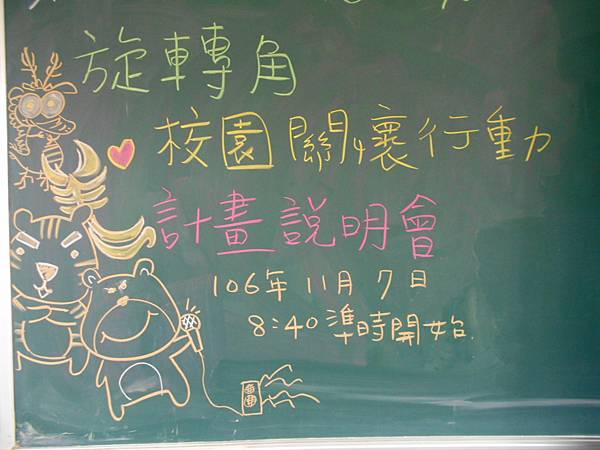 旋轉角
校園關懷行動
計畫說明會
106年11月7日
8:40準時開始.